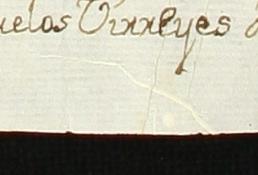 uelos Virreyes